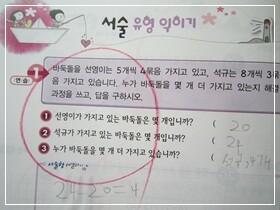 서술 유형 익히기
연습 1 바둑돌을 선영이는 5개씩 4묶음 가지고 있고, 석규는 8개씩 3묶
음 가지고 있습니다. 누가 바둑돌을 몇 개 더 가지고 있는지 해결
과정을 쓰고, 답을 구하시오.
1 선영이가 가지고 있는 바둑돌은 몇 개입니까? ( 20
2 석규가 가지고 있는 바둑돌은 몇 개입니까? ( 24
3 누가 바둑돌을 몇 개 더 가지고 있습니까? ( 석규, 4개
24-20=4